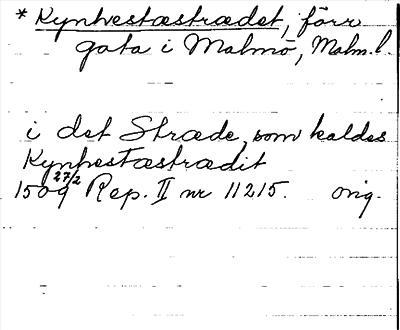 * Kynhestæstrædet, förr
gata i Malmö, Malm. l.
i det Stræde, som kaldes
Kynhestæstrædit
1509 27/2 Rep. II nr 11215. orig.